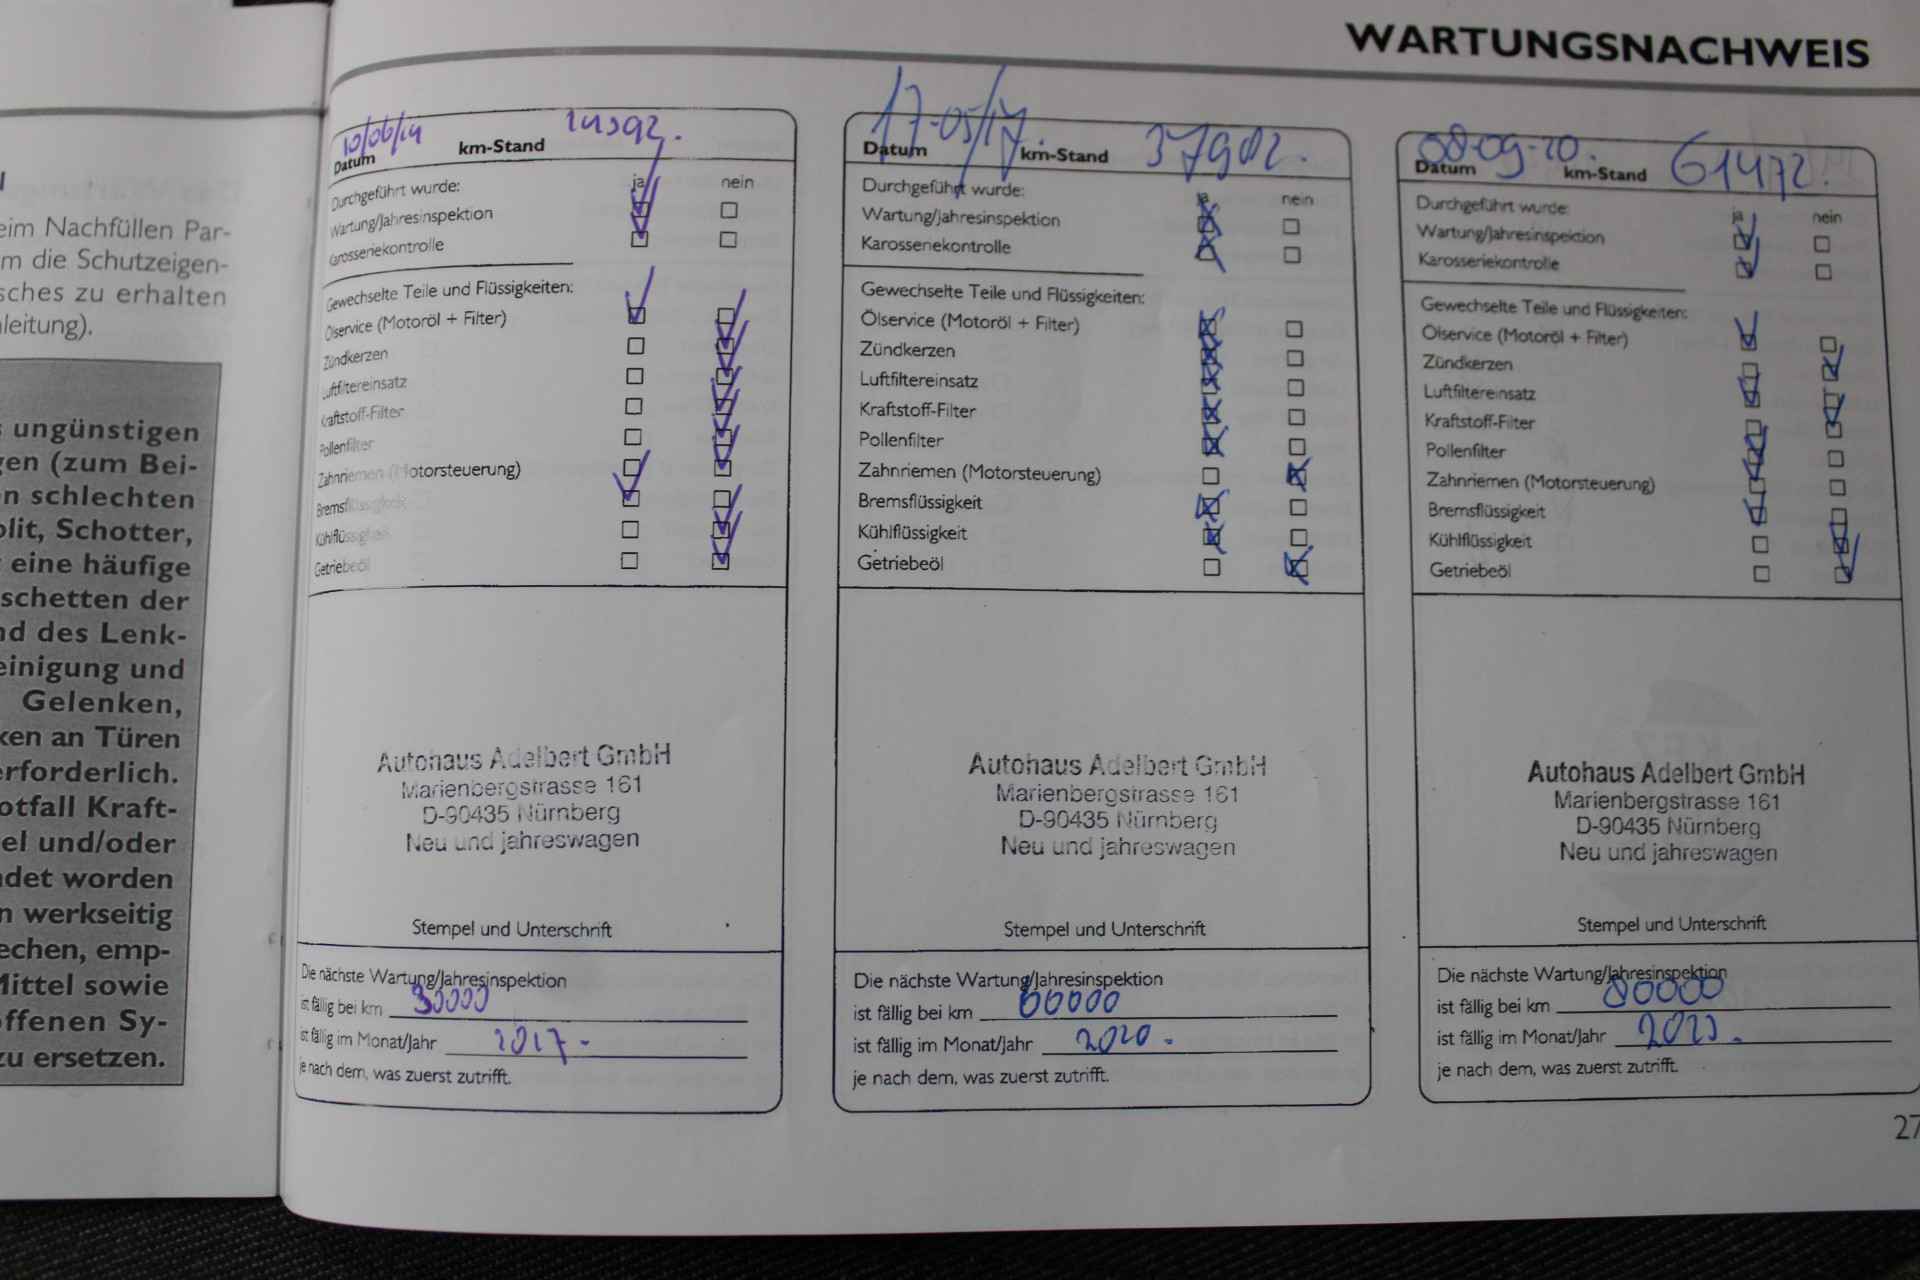 WARTUNGSNACHWEIS
eim Nachfüllen Par-
m die Schutzeigen-
sches zu erhalten
leitung).
ungünstigen
gen (zum Bei-
n schlechten
olit, Schotter,
eine häufige
schetten der
nd des Lenk-
einigung und
Gelenken,
ken an Türen
erforderlich.
otfall Kraft-
el und/oder
ndet worden
n werkseitig
echen, emp-
Mittel sowie
offenen Sy-
zu ersetzen.
10/06/14
Datum km-Stand
Durchgeführt wurde: ja nein
Wartung/Jahresinspektion
Karosseriekontrolle
Gewechselte Teile und Flüssigkeiten:
Ölservice (Motoröl + Filter)
Zündkerzen
Luftfiltereinsatz
Kraftstoff-Filter
Pollenfilter
Zahnriemen (Motorsteuerung)
Bremsflüssigkeit
Kühlflüssigkeit
Getriebeöl
Autohaus Adelbert GmbH
Marienbergstrasse 161
D-90435 Nürnberg
Neu und jahreswagen
Stempel und Unterschrift
Die nächste Wartung/Jahresinspektion
ist fällig bei km 30000
ist fällig im Monat/Jahr 2017.
je nach dem, was zuerst zutrifft.
17-05/17. 37902.
Datum km-Stand
Durchgeführt wurde: ja nein
Wartung/Jahresinspektion
Karosseriekontrolle
Gewechselte Teile und Flüssigkeiten:
Ölservice (Motoröl + Filter)
Zündkerzen
Luftfiltereinsatz
Kraftstoff-Filter
Pollenfilter
Zahnriemen (Motorsteuerung)
Bremsflüssigkeit
Kühlflüssigkeit
Getriebeöl
Autohaus Adelbert GmbH
Marienbergstrasse 161
D-90435 Nürnberg
Neu und jahreswagen
Stempel und Unterschrift
Die nächste Wartung/Jahresinspektion
ist fällig bei km 60000
ist fällig im Monat/Jahr 2020.
je nach dem, was zuerst zutrifft.
08-09-20. 61472.
Datum km-Stand
Durchgeführt wurde: ja nein
Wartung/Jahresinspektion
Karosseriekontrolle
Gewechselte Teile und Flüssigkeiten:
Ölservice (Motoröl + Filter)
Zündkerzen
Luftfiltereinsatz
Kraftstoff-Filter
Pollenfilter
Zahnriemen (Motorsteuerung)
Bremsflüssigkeit
Kühlflüssigkeit
Getriebeöl
Autohaus Adelbert GmbH
Marienbergstrasse 161
D-90435 Nürnberg
Neu und jahreswagen
Stempel und Unterschrift
Die nächste Wartung/Jahresinspektion
ist fällig bei km 80000
ist fällig im Monat/Jahr
je nach dem, was zuerst zutrifft.
27